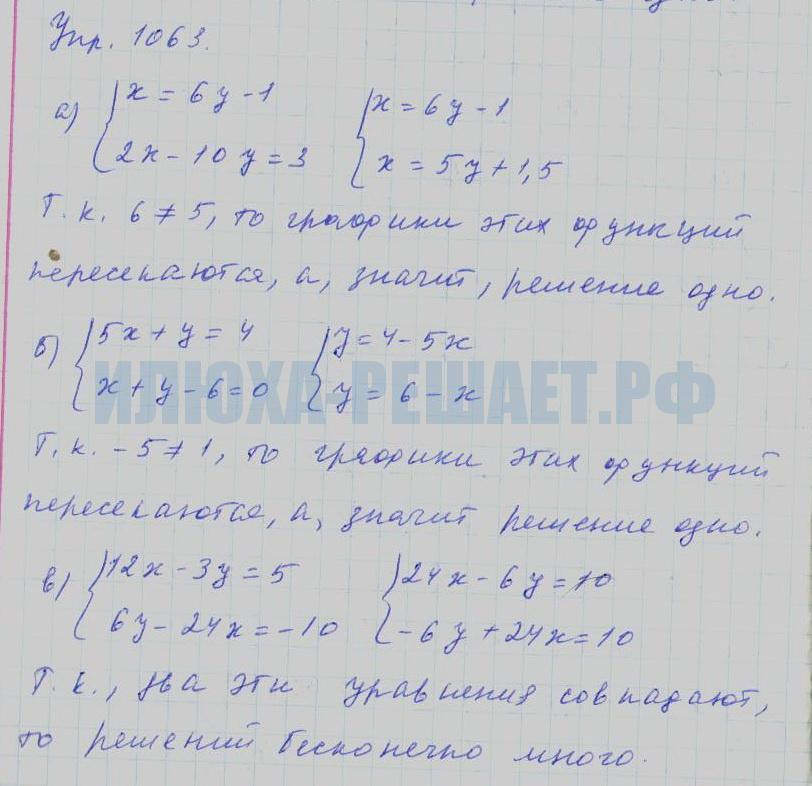 Упр. 1063.
а) { x = 6y - 1   { x = 6y - 1
{ 2x - 10y = 3   { x = 5y + 1,5
Т. к. 6 ≠ 5, то графики этих функций
пересекаются, а, значит, решение одно.
б) { 5x + y = 4   { y = 4 - 5x
{ x + y - 6 = 0   { y = 6 - x
ИЛЮХА-РЕШАЕТ.РФ
Т. к. - 5 ≠ 1, то графики этих функций
пересекаются, а, значит решение одно.
в) { 12x - 3y = 5   { 24x - 6y = 10
{ 6y - 24x = -10   { -6y + 24x = 10
Т. к., два эти уравнения совпадают,
то решений бесконечно много.